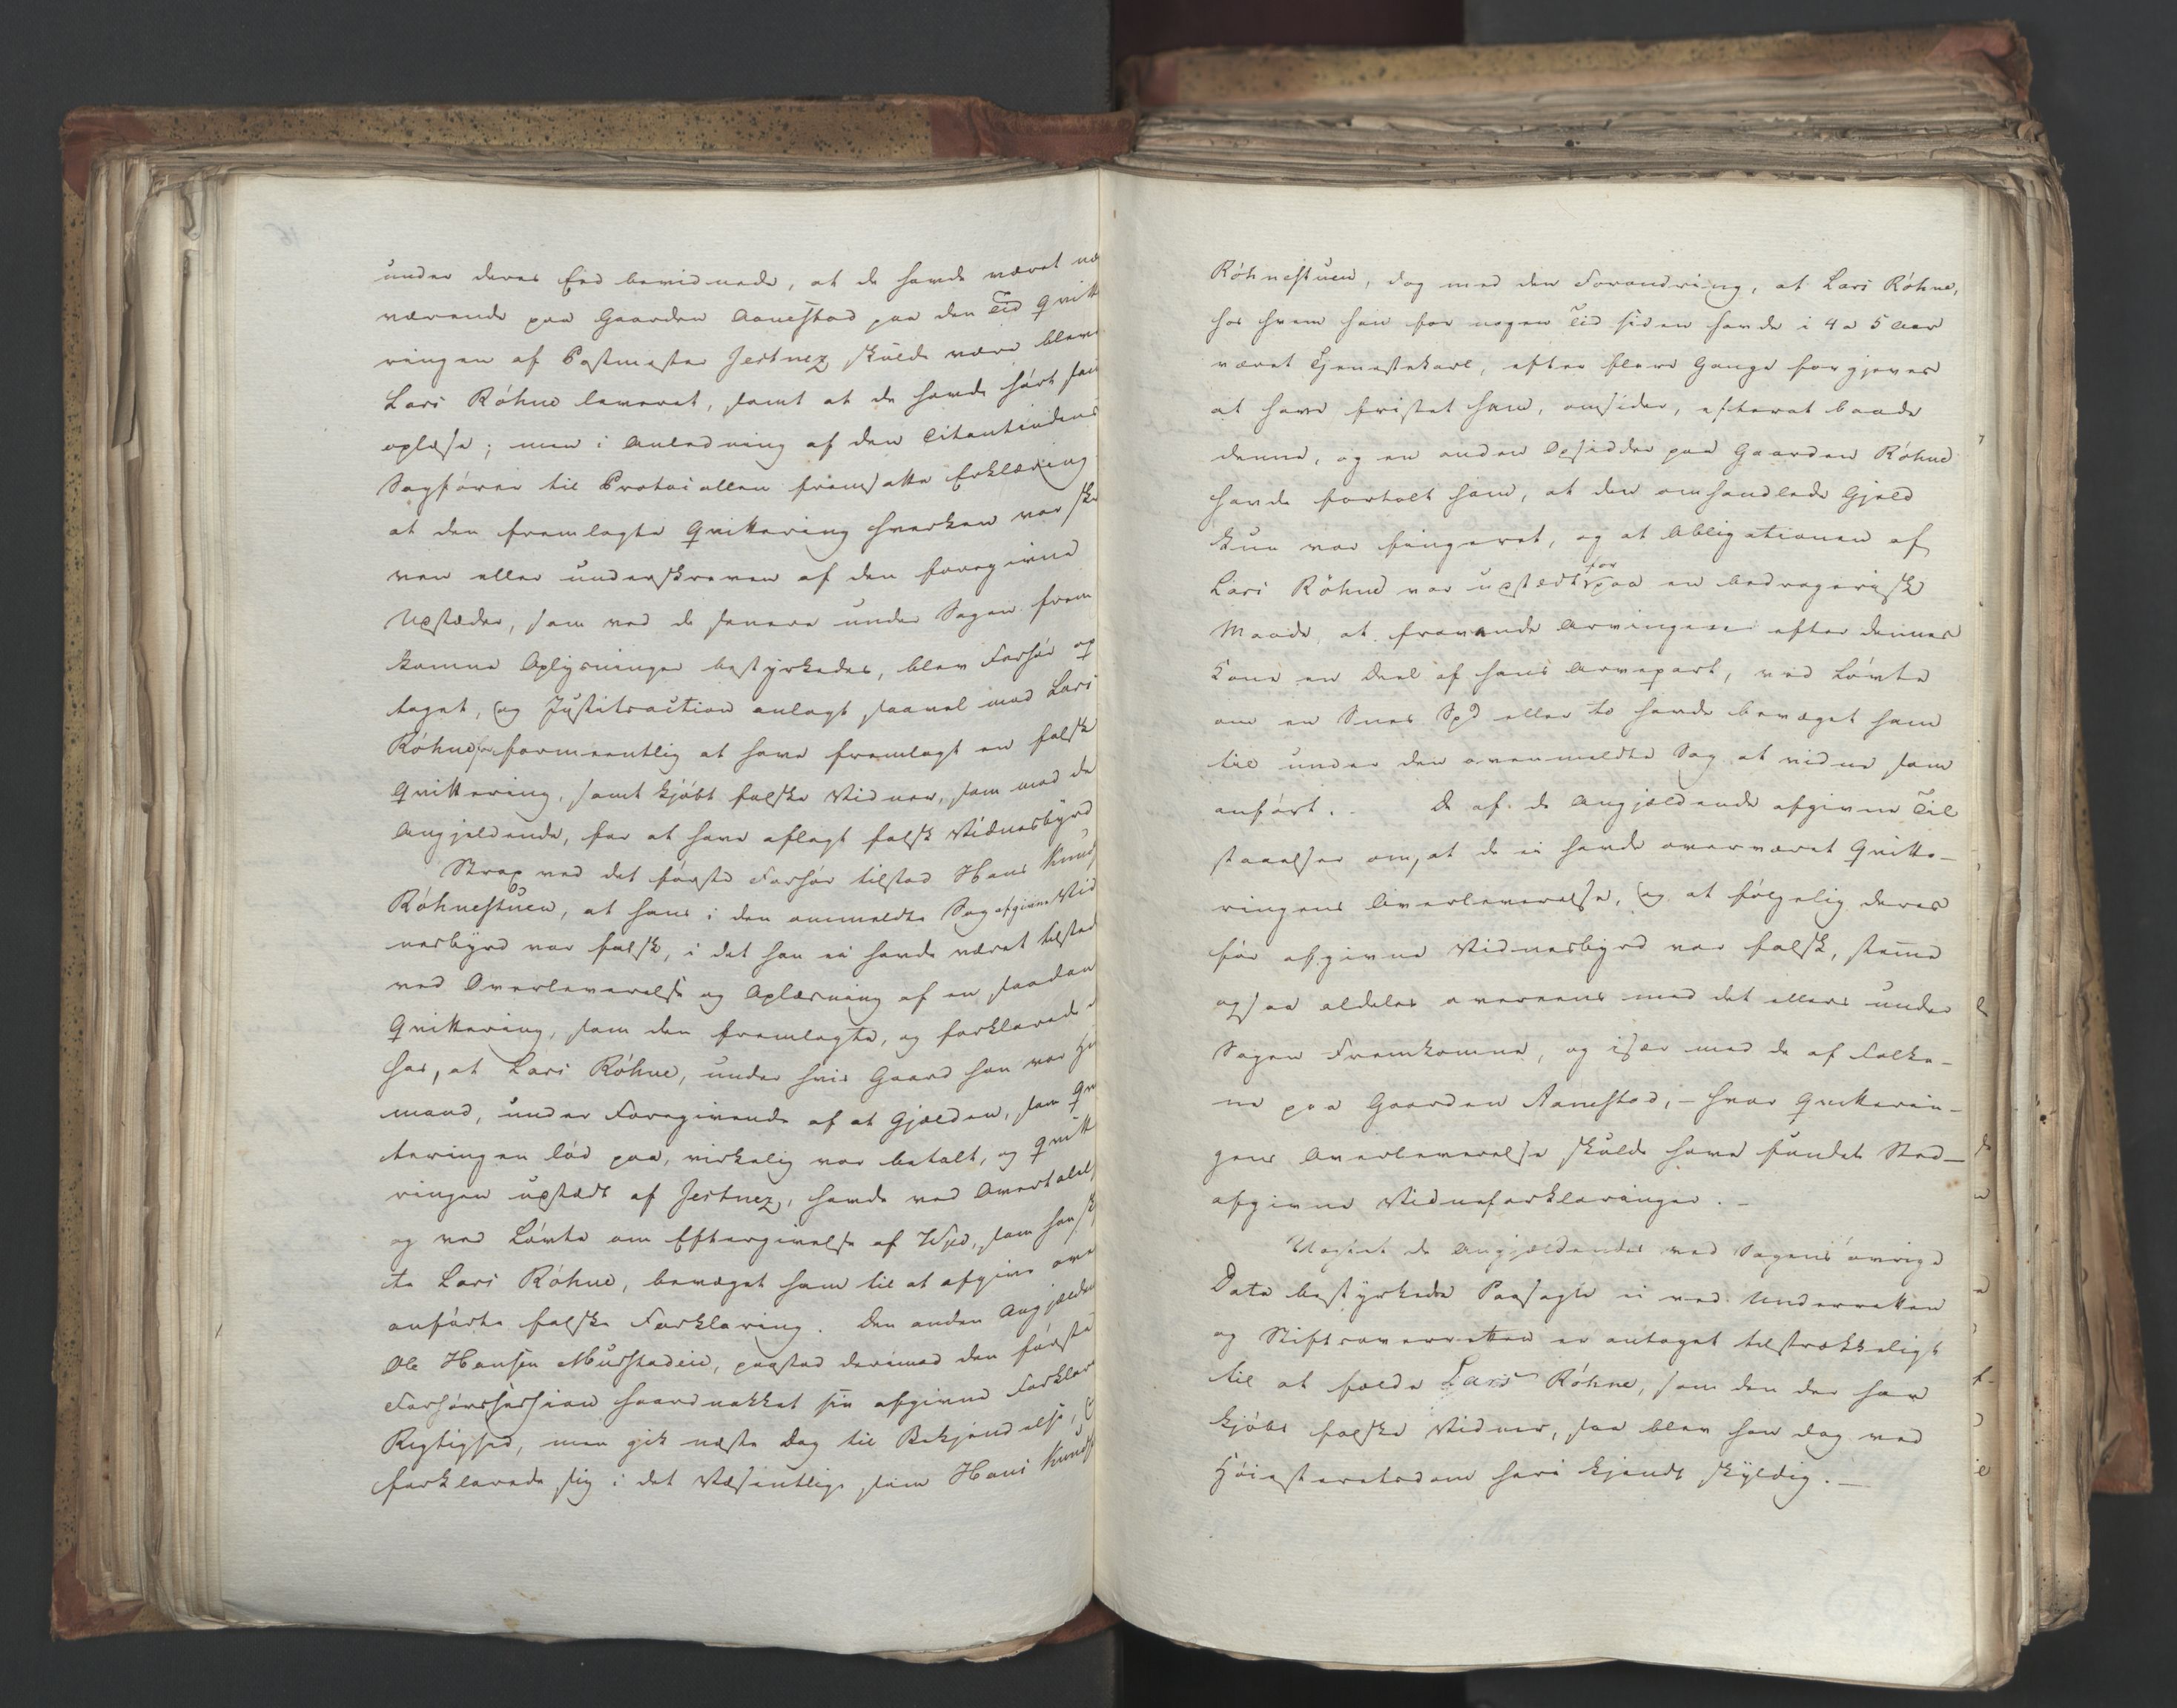 under deres Eed bevidnede, at de havde været næ
værende paa Gaarden Aanestad paa den Tid Qvitt
ringen af Postmester Jertnez skulde være bleve
Lars Röhne leveret, samt at de havde hört den
oplæse; men i Anledning af den Citantindens
Sagförer til Protocollen fremsatte Erklæring
at den fremlagte Qvittering hverken var skre
ven eller underskreven af den foregivne
Udstæder, som ved de senere under Sagen frem
komne Oplysninger bestyrkedes, blev Forhör op
taget, og Justitsaction anlagt saavel mod Lars
Röhne for formeentlig at have fremlagt en falsk
Qvittering, samt kjöbt falske Vidner, som mod de
Angjeldende, for at have aflagt falsk Vidnesbyrd
Strax ved det förste Forhör tilstod Hans Knud
Röhnestuen, at hans i den ommeldte Sag afgivne Vid
nesbyrd var falsk, i det han ei havde været tilsted
ved Overleverelse og Oplæsning af en saadan
Qvittering, som den fremlagte, og forklarede
hos, at Lars Röhne, under hvis Gaard han var Hu
mand, under Foregivende af at Gjælden, som Qvi
teringen löd paa, virkelig var betalt, og Qvitt
ringen udstædt af Jertnez, havde ved Overtalel
og ved Lövte om Eftergivelse af Spd, som han sk
te Lars Röhne, bevæget ham til at afgive ove
anförte falske Forklaring. Den anden Angjelden
Ole Hansen Murstadeie, paastod derimod den förste
Forhörssession haardnakket sin afgivne Forklar
Rigtighed, men gik næste Dag til Bekjendelse, og
forklarede sig i det Væsentlige som Hans Knuds
Röhnestuen, dog med den Forandring, at Lars Röhne,
hos hvem han for nogen Tid siden havde i 4 a 5 Aar
været Tjenestekarl, efter flere Gange forgjeves
at have fristet ham, omsider, efterat baade
denne, og en anden Opsidder paa Gaarden Röhne
havde fortalt ham, at den omhandlede Gjeld
kun var fingeret, og at Obligationen af
Lars Röhne var udstædt for paa en bedragerisk
Maade at fravende Arvingerne efter dennes
Kone en Deel af hans Arvepart, ved Lövte
om en Snes Spd eller to havde bevæget ham
til under den ovenmeldte Sag at vidne som
anfört. De af de Angjældende afgivne Til
staaelser om, at de ei havde overværet Qvitte-
ringens Overleverelse, og at fölgelig deres
för afgivne Vidnesbyrd var falsk, stemme
ogsaa aldeles overeens med det ellers under
Sagen Fremkomne, og især med de af Folke-
ne paa Gaarden Aanestad, – hvor Qvitterin-
gens Overleverelse skulde have fundet Sted –
afgivne Vidneforklaringer. –
Uagtet de Angjældendes ved Sagens övrige
Data bestyrkede Paasagte ei ved Underretten
og Stiftsoverretten er antaget tilstrækkeligt
til at fælde Lars Röhne, som den der har
kjöbt falske Vidner, saa blev han dog ved
Höiesteretsdom heri kjendt skyldig. –